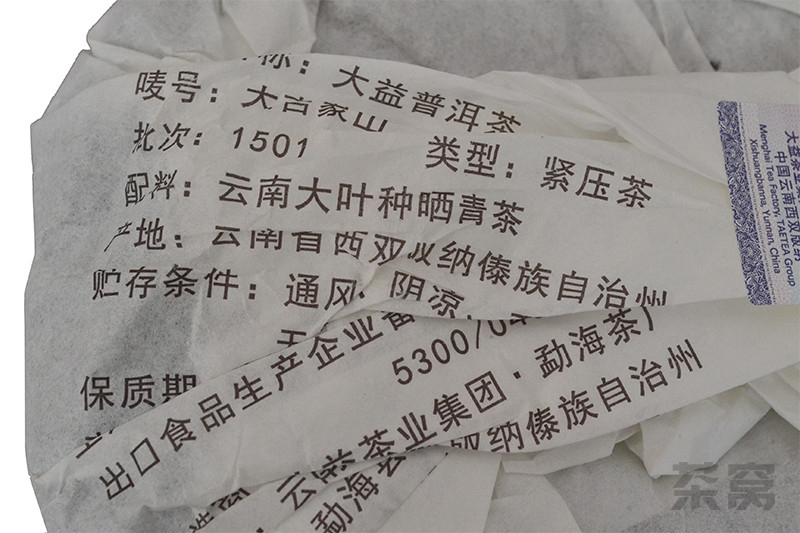 称：大益普洱茶
唛号：大古家山
批次：1501 类型：紧压茶
配料：云南大叶种晒青茶
产地：云南省西双版纳傣族自治州
贮存条件：通风、阴凉、
无
保质期
出口食品生产企业备
5300/04
云 茶业集团·勐海茶厂
勐海县 双版纳傣族自治州
大益茶业
中国云南西双版纳
Menghai Tea Factory, TAETEA Group
Xishuangbanna, Yunnan, China
茶窝